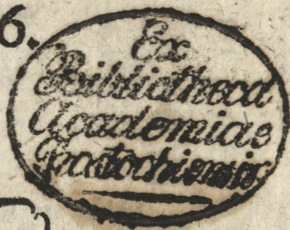 6.
Ex
Bibliotheca
Academiae
Rostochiensis